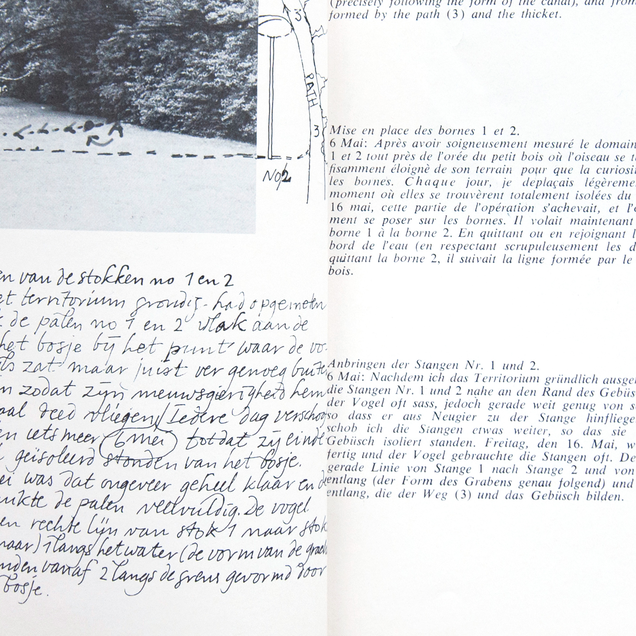 3
PATH
3
No/2
en van de stokken no 1 en 2
et territorium grondig had opgemeten
de palen no 1 en 2 vlak aan de
het bosje bij het punt waar de vo-
ls zat maar juist ver genoeg buite
n zodat zijn nieuwsgierigheid hem
aal deed vliegen/ Iedere dag verschoo
en iets meer (6 mei) totdat zij eind
geisoleerd stonden van het bosje.
ei was dat ongeveer geheel klaar en d
uikte de palen veelvuldig. De vogel
en rechte lijn van stok 1 naar stok
naar) 1 langs het water (de vorm van de grach
nden vanaf 2 langs de grens gevormd door
bosje.
(precisely following the form of the canal), and from
formed by the path (3) and the thicket.
Mise en place des bornes 1 et 2.
6 Mai: Après avoir soigneusement mesuré le domain
1 et 2 tout près de l'orée du petit bois où l'oiseau se t
fisamment éloignè de son terrain pour que la curiosi
les bornes. Chaque jour, je deplaçais légèreme
moment où elles se trouvèrent totalement isolées du
16 mai, cette partie de l'opération s'achevait, et l'o
ment se poser sur les bornes. Il volait maintenant
borne 1 à la borne 2. En quittant ou en rejoignant l
bord de l'eau (en respectant scrupuleusement les d
quittant la borne 2, il suivait la ligne formée par le
bois.
Anbringen der Stangen Nr. 1 und 2.
6 Mai: Nachdem ich das Territorium gründlich ausge
die Stangen Nr. 1 und 2 nahe an den Rand des Gebüs
der Vogel oft sass, jedoch gerade weit genug von s
so dass er aus Neugier zu der Stange hinfliege
schob ich die Stangen etwas weiter, so das sie
Gebüsch isoliert standen. Freitag, den 16. Mai, w
fertig und der Vogel gebrauchte die Stangen oft. De
gerade Linie von Stange 1 nach Stange 2 und von
entlang (der Form des Grabens genau folgend) und
entlang, die der Weg (3) und das Gebüsch bilden.